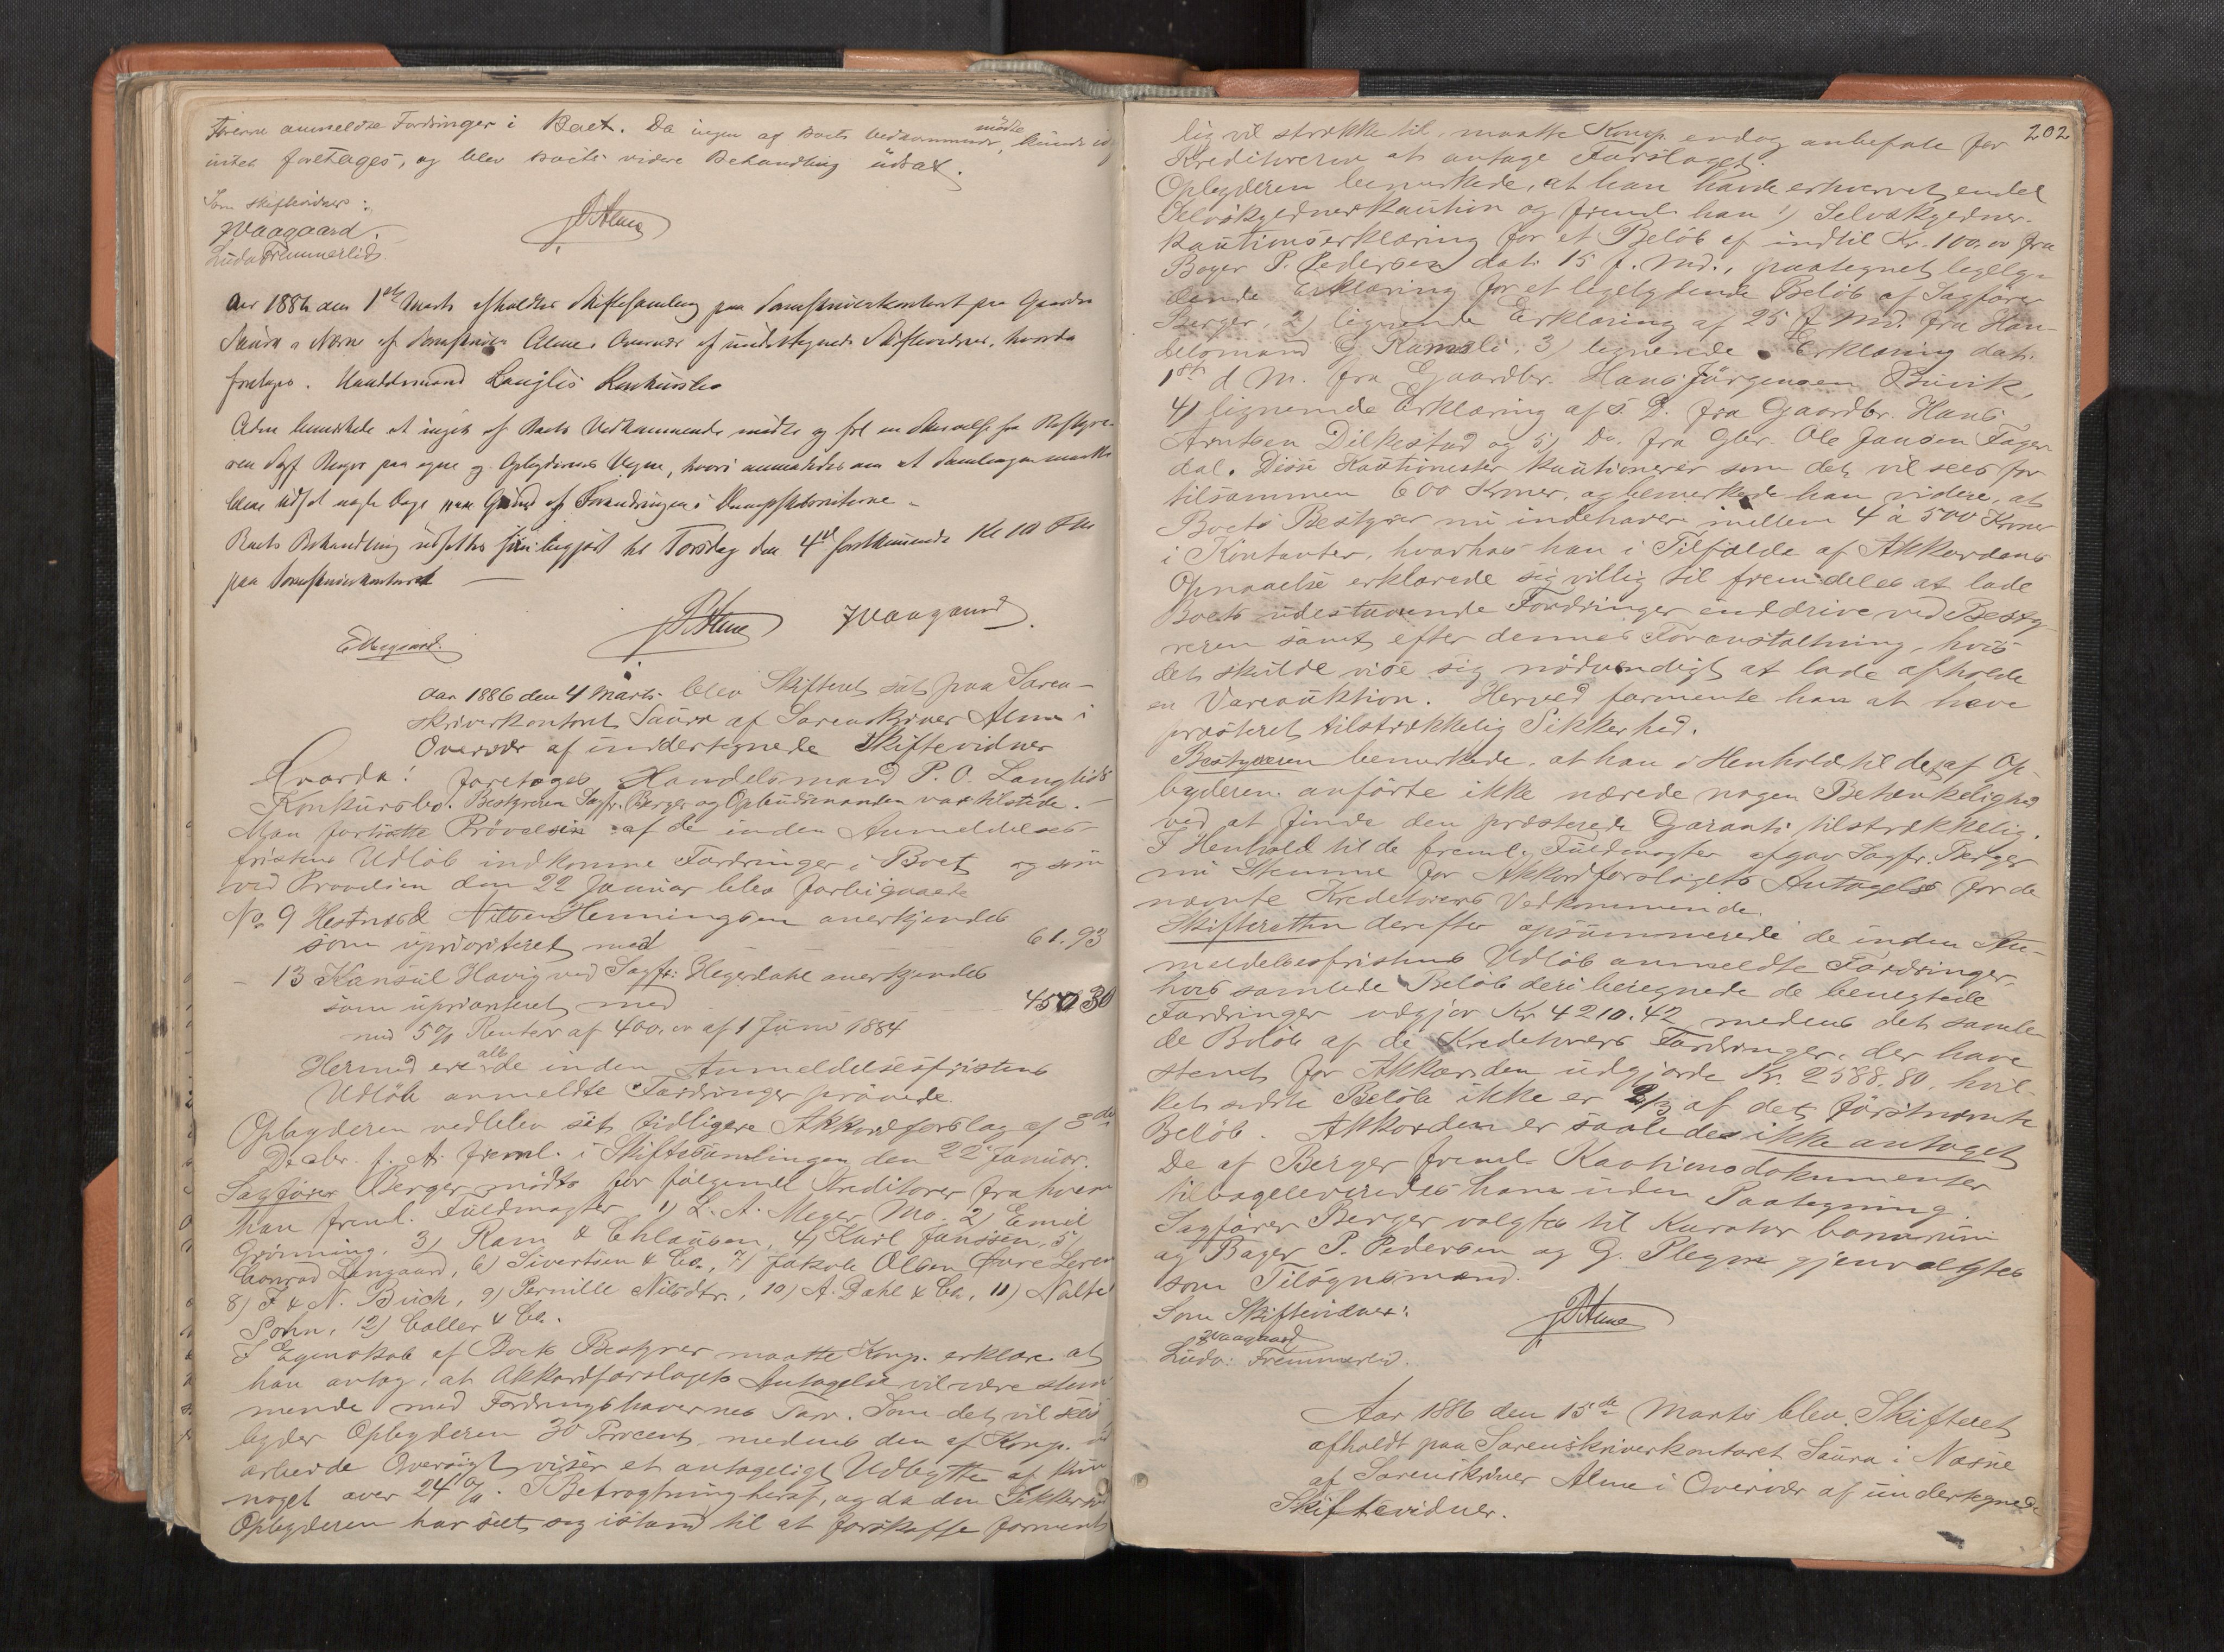 anmeldte Fordringer i Boet. Da ingen af Boets Vedkommende mødte, kunde
intet foretages, og blev Boets videre Behandling udsat.
Som Skiftevidner:
JVaagaard.
Ludv Fremmerlid
Aar 1886 den 1ste Marts afholdtes Skiftesamling paa Sorenskriverkontoret paa Gaarden
Saura i Næsne af Sorenskriver Alme i Overvær af undertegnede Skiftevidner, hvorda
foretoges. Handelsmand Langlis Konkursbo
bemærkede at ingen af Boets Vedkommende mødte og frl en Skrivelse fra Bestyre-
ren Sagf Berger paa egne og Opbyderens Vegne, hvori anmodedes om at Samlingen maatte
blive udsat nogle Dage paa Grund af Forandringen i Dampskibsruterne.
Boets Behandling udsattes til Torsdag den 4de førstkommende Kl 10 Fm
paa Sorenskriverkontoret
JVaagaard.
EVaagaard.
Aar 1886 den 4 Marts blev Skifteret sat paa Soren-
skriverkontoret Saura af Sorenskriver Alme i
Overvær af undertegnede Skiftevidner
Hvorda: foretoges Handelsmand P. O. Langlids
Konkursbo. Bestyreren Sagfr. Berger og Opbudsmanden var tilstede.
Man fortsatte Prøvelsen af de inden Anmeldelses-
fristens Udløb indkomne Fordringer i Boet og som
ved Prøvelsen den 22 Januar blev forbigaaede
No. 9 Hestnesd Nilsen Henningsen anerkjendes
som uprioriteret med 61.93
- 13 Konsul Havig ved Sagfr: Hegerdahl anerkjendes
som uprioriteret med 450 30
med 5% Renter af 400,00 af 1 Juni 1884
Hermed ere alle de inden Anmeldelsesfristens
Udløb anmeldte Fordringer prøvede.
Opbyderen vedblev sit tidligere Akkordforslag af 3de
Decbr. f. A. freml. i Skiftesamlingen den 22 Januar.
Sagfører Berger mødte for følgende Kreditorer fra hvem
han freml. Fuldmagter 1) L. A. Meyer Mo. 2) Emil
Grønning, 3) Ram & Chlausen, 4) Karl Janssen, 5)
Conrad Langaard, 6) Sivertsen & Co., 7) Jakob Olsen
8) F & N. Buch, 9) Pernille Nilsdtr., 10) A. Dahl & Co, 11)
Sohn, 12) Coller & Co.
I Egenskab af Boets Bestyrer maatte Komp. erklære at
han antog, at Akkordforslagets Antagelse vil være stem-
mende med Fordringshavernes Tarv. Som det vil sees
byder Opbyderen 30 Procent, medens den af Komp. ud
arbeide Oversigt viser et antageligt Udbytte af kun
noget over 24 %. I Betragtning heraf, og da den Sikkerhed
Opbyderen har seet sig istand til at forskaffe forment
202
lig vil strække til, maatte Komp. endog anbefale for
Kreditorerne at antage Forslaget.
Opbyderen bemærkede, at han havde erhvervet endel
Selvskyldnerkaution og freml. han 1) Selvskyldner-
kautionserklæring for et Beløb af indtil Kr. 100,00 fra
Bager P. Pedersen dat. 15 f. Md., paategnet ligely-
dende Erklæring for et ligelydende Beløb af Sagfører
Berger, 2) lignende Erklæring af 25 f Md. fra Han-
delsmand G Ramsli, 3) lignende Erklæring dat.
1ste d M. fra Gaardbr. Hans Jørgensen Buvik,
4) lignende Erklæring af s. D. fra Gaardbr. Hans
Arntsen Dilkestad og 5) Do. fra Gbr. Ole Jansen Fager
dal. Disse Kautionister kautionerer som det vil sees for
tilsammen 600 Kroner, og bemærkede han videre, at
Boets Bestyrer nu indehaver mellem 4 à 500 Kroner
i Kontanter, hvorhos han i Tilfælde af Akkordens
Opnaaelse erklærede sig villig til fremdeles at lade
Boets udestaaende Fordringer inddrive ved Besty-
reren samt efter dennes Foranstaltning, hvis
det skulde vise sig nødvendigt at lade afholde
en Vareauktion. Herved formente han at have
præsteret tilstrækkelig Sikkerhed.
Bestyreren bemærkede, at han i Henhold til det af Op-
byderen anførte ikke nærede nogen Betænkelighed
ved at finde den præsterede Garanti tilstrækkelig.
I Henhold til de freml. Fuldmagter afgav Sagfr. Berger
nu Stemme for Akkordforslagets Antagelse for de
nævnte Kreditorers Vedkommende.
Skifteretten derefter opsummerede de inden An-
meldelsesfristens Udløb anmeldte Fordringer,
hvis samlede Beløb deri beregnede de benegtede
Fordringer udgjør Kr 4210.42 medens det samle-
de Beløb af de Kreditorers Fordringer, der have
stemt for Akkorden udgjorde Kr. 2588.80, hvil-
ket sidste Beløb ikke er 2/3 af det førstnævnte
Beløb. Akkorden er saaledes ikke antaget
De af Berger freml. Kautionsdokumenter
tilbageleveredes ham uden Paategning.
Sagfører Berger valgtes til Kurator bonorum
og Bager P. Pedersen og G. Plegne gjenvalgtes
som Tilsynsmænd.
Som Skiftevidner:
JVaagaard
Ludv: Fremmerlid.
Aar 1886 den 15de Marts blev Skifteret
afholdt paa Sorenskriverkontoret Saura i Næsne
af Sorenskriver Alme i Overvær af undertegnede
Skiftevidner.